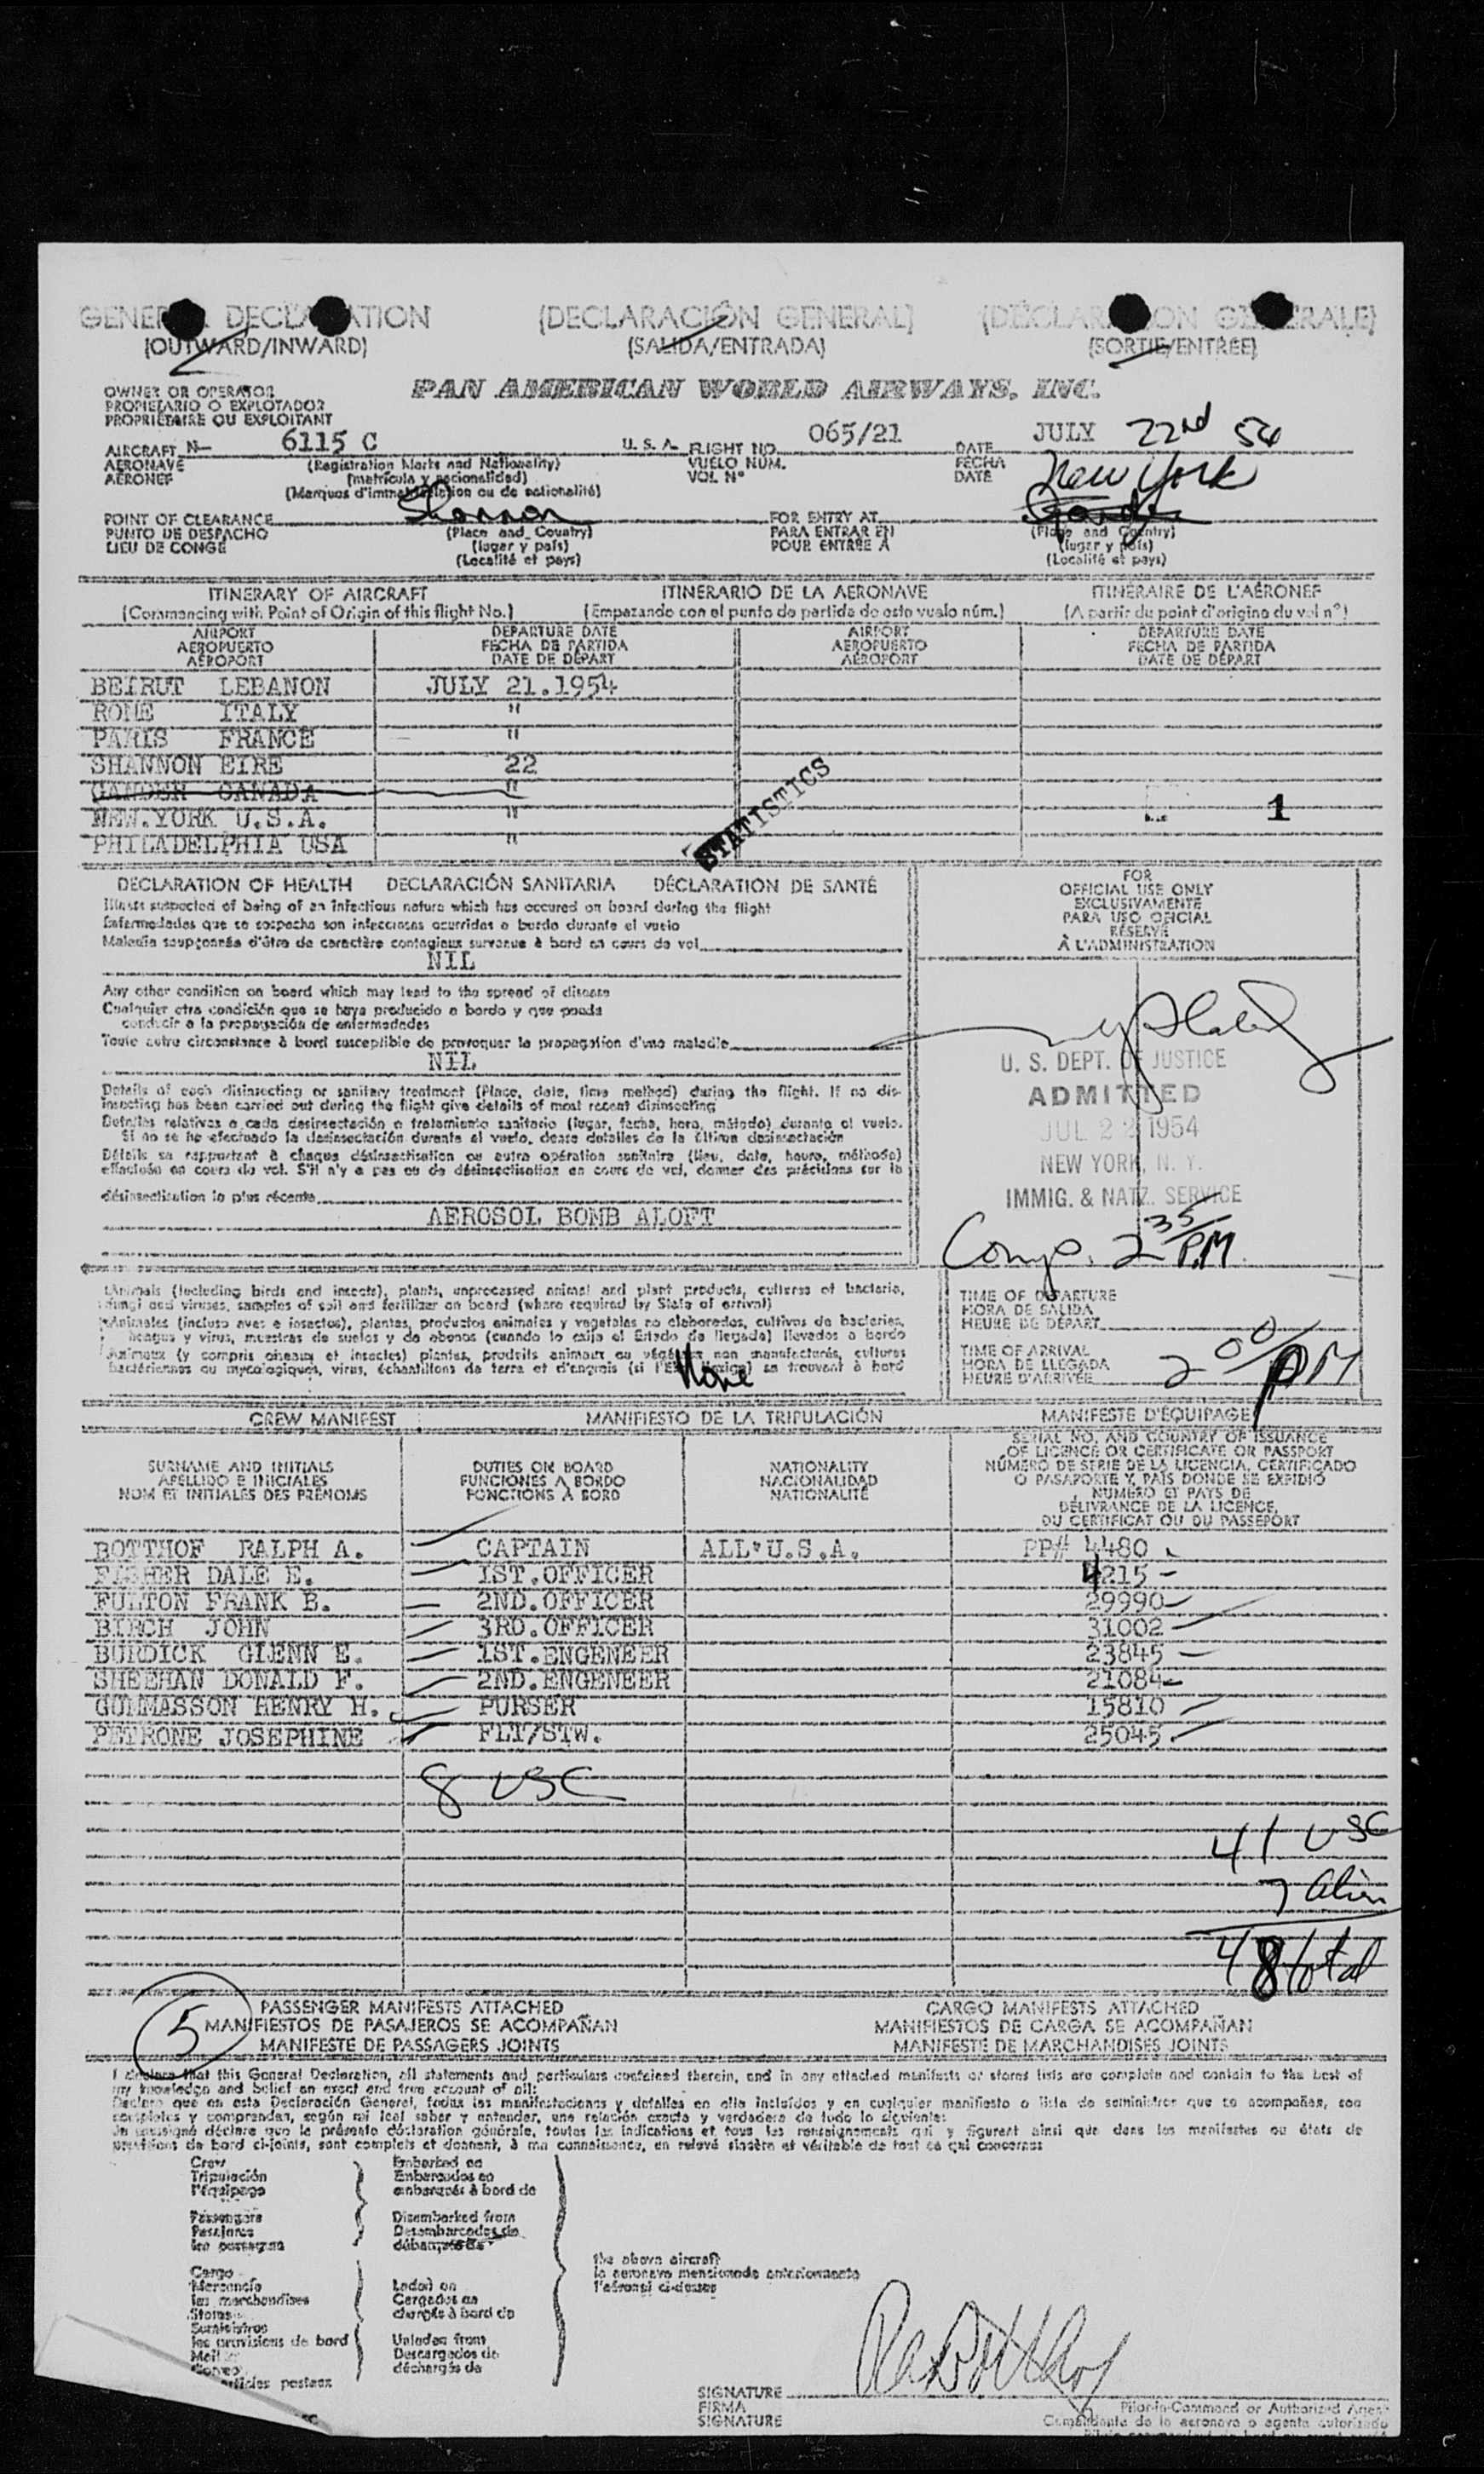 GENERAL DECLARATION (DECLARACIÓN GENERAL) (DÉCLARATION GENERALE)
(OUTWARD/INWARD) (SALIDA/ENTRADA) (SORTIE/ENTRÉE)
OWNER OR OPERATOR
PROPIETARIO O EXPLOTADOR
PROPRIÉTAIRE OU EXPLOITANT
PAN AMERICAN WORLD AIRWAYS, INC.
AIRCRAFT N- 6115 C U. S. A. FLIGHT NO. 065/21 DATE JULY 22nd 54
AERONAVE (Registration Marks and Nationality) VUELO NÚM. FECHA
AÉRONEF (matrícula y nacionalidad) VOL Nº DATE
(Marques d'immatriculation ou de nationalité)
New York
POINT OF CLEARANCE Shannon FOR ENTRY AT Gander
PUNTO DE DESPACHO (Place and Country) PARA ENTRAR EN (Place and Country)
LIEU DE CONGÉ (lugar y país) POUR ENTRÉE À (lugar y país)
(Localité et pays) (Localité et pays)
ITINERARY OF AIRCRAFT ITINERARIO DE LA AERONAVE ITINÉRAIRE DE L'AÉRONEF
(Commencing with Point of Origin of this flight No.) (Empezando con el punto de partida de este vuelo núm.) (A partir du point d'origine du vol nº)
AIRPORT DEPARTURE DATE AIRPORT DEPARTURE DATE
AEROPUERTO FECHA DE PARTIDA AEROPUERTO FECHA DE PARTIDA
AÉROPORT DATE DE DÉPART AÉROPORT DATE DE DÉPART
BEIRUT LEBANON JULY 21.1954
ROME ITALY "
PARIS FRANCE "
SHANNON EIRE 22
GANDER CANADA "
NEW.YORK U.S.A. " 1
PHILADELPHIA USA "
STATISTICS
DECLARATION OF HEALTH DECLARACIÓN SANITARIA DÉCLARATION DE SANTÉ
Illness suspected of being of an infectious nature which has occured on board during the flight
Enfermedades que se sospecha son infecciosas ocurridas a bordo durante el vuelo
Maladie soupçonnée d'être de caractère contagieux survenue à bord en cours de vol
NIL
Any other condition on board which may lead to the spread of disease
Cualquier otra condición que se haya producido a bordo y que pueda
conducir a la propagación de enfermedades
Toute autre circonstance à bord susceptible de provoquer la propagation d'une maladie
NIL
Details of each disinsecting or sanitary treatment (Place, date, time method) during the flight. If no dis-
insecting has been carried out during the flight give details of most recent disinsecting
Detalles relativos a cada desinsectación o tratamiento sanitario (lugar, fecha, hora, método) durante el vuelo.
Si no se ha efectuado la desinsectación durante el vuelo, dense detalles de la última desinsectación
Détails se rapportant à chaque désinsectisation ou autre opération sanitaire (lieu, date, heure, méthode)
effectuée en cours de vol. S'il n'y a pas eu de désinsectisation en cours de vol, donner des précisions sur la
désinsectisation la plus récente
AEROSOL BOMB ALOFT
FOR
OFFICIAL USE ONLY
EXCLUSIVAMENTE
PARA USO OFICIAL
RÉSERVÉ
À L'ADMINISTRATION
U. S. DEPT. OF JUSTICE
ADMITTED
JUL 22 1954
NEW YORK, N. Y.
IMMIG. & NATZ. SERVICE
Comp. 2 35 P.M.
Animals (including birds and insects), plants, unprocessed animal and plant products, cultures of bacteria,
fungi and viruses, samples of soil and fertilizer on board (where required by State of arrival)
Animales (incluso aves e insectos), plantas, productos animales y vegetales no elaborados, cultivos de bacterias,
hongos y virus, muestras de suelos y de abonos (cuando lo exija el Estado de llegada) llevados a bordo
Animaux (y compris oiseaux et insectes) plantes, produits animaux ou végétaux non manufacturés, cultures
bactériennes ou mycologiques, virus, échantillons de terre et d'engrais (si l'État l'exige) se trouvant à bord
None
TIME OF DEPARTURE
HORA DE SALIDA
HEURE DE DÉPART
TIME OF ARRIVAL
HORA DE LLEGADA
HEURE D'ARRIVÉE
2 00 PM
CREW MANIFEST MANIFIESTO DE LA TRIPULACIÓN MANIFESTE D'ÉQUIPAGE
SURNAME AND INITIALS
APELLIDO E INICIALES
NOM ET INITIALES DES PRÉNOMS
DUTIES ON BOARD
FUNCIONES A BORDO
FONCTIONS À BORD
NATIONALITY
NACIONALIDAD
NATIONALITÉ
SERIAL NO. AND COUNTRY OF ISSUANCE
OF LICENCE OR CERTIFICATE OR PASSPORT
NÚMERO DE SERIE DE LA LICENCIA, CERTIFICADO
O PASAPORTE Y PAÍS DONDE SE EXPIDIÓ
NUMÉRO ET PAYS DE
DÉLIVRANCE DE LA LICENCE,
DU CERTIFICAT OU DU PASSEPORT
BOTTHOF RALPH A. CAPTAIN ALL U.S.A. PP# 4480
FISHER DALE E. 1ST.OFFICER 4215
FULTON FRANK B. 2ND.OFFICER 29990
BIRCH JOHN 3RD.OFFICER 31002
BURDICK GLENN E. 1ST.ENGENEER 23845
SHEEHAN DONALD F. 2ND.ENGENEER 21084
GUMMASSON HENRY H. PURSER 15810
PETRONE JOSEPHINE FLT/STW. 25045
8 USC
41 USC
7 alien
48 total
5
PASSENGER MANIFESTS ATTACHED CARGO MANIFESTS ATTACHED
MANIFIESTOS DE PASAJEROS SE ACOMPAÑAN MANIFIESTOS DE CARGA SE ACOMPAÑAN
MANIFESTE DE PASSAGERS JOINTS MANIFESTE DE MARCHANDISES JOINTS
I declare that this General Declaration, all statements and particulars contained therein, and in any attached manifests or stores lists are complete and contain to the best of
my knowledge and belief an exact and true account of all:
Declaro que en esta Declaración General, todas las manifestaciones y detalles en ella incluídos y en cualquier manifiesto o lista de suministros que se acompañen, son
completos y comprenden, según mi leal saber y entender, una relación exacta y verdadera de todo lo siguiente:
Je soussigné déclare que la présente déclaration générale, toutes les indications et tous les renseignements qui y figurent ainsi que dans les manifestes ou états de
provisions de bord ci-joints, sont complets et donnent, à ma connaissance, un relevé sincère et véritable de tout ce qui concerne:
Crew
Tripulación
l'équipage
Embarked on
Embarcados en
embarqués à bord de
Passengers
Pasajeros
les passagers
Disembarked from
Desembarcados de
débarqués de
Cargo
Mercancía
les marchandises
Stores
Suministros
les provisions de bord
Mail
Correo
articles postaux
Laded on
Cargados en
chargés à bord de
Unladen from
Descargados de
déchargés de
the above aircraft
la aeronave mencionada anteriormente
l'aéronef ci-dessus
SIGNATURE RaBotthof
FIRMA
SIGNATURE
Pilot-in-Command or Authorized Agent
Comandante de la aeronave o agente autorizado